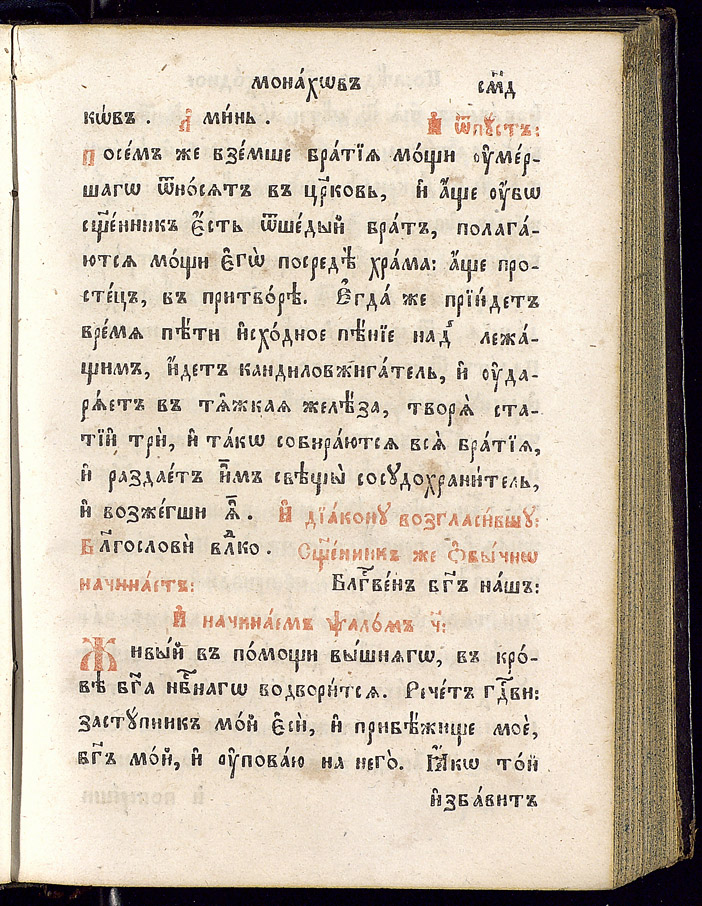 мона́хѡвъ см҃д
кѡ́въ . А҆ ми́нь . И҆ ѿпу́стъ:
П осе́мъ же взе́мше бра́тїѧ мо́щи ᲂу҆ме́р-
шагѡ ѿно́сѧтъ въ цр҃ковь, и҆ а҆́ще ᲂу҆́бѡ
сщ҃е́нникъ є҆́сть ѿше́дый бра́тъ, полага́-
ютсѧ мо́щи є҆гѡ̀ посредѣ̀ хра́ма: а҆́ще про-
сте́цъ, въ притво́рѣ. Є҆гда́ же прїи́детъ
вре́мѧ пѣ́ти и҆схо́дное пѣ́нїе над̾ лежа́-
щимъ, и҆́детъ кандиловжига́тель, и҆ ᲂу҆да-
рѧ́етъ въ тѧ̑жкаѧ желѣ̑за, творѧ̀ ста-
тїи̑ трѝ, и҆ та́кѡ собира́ютсѧ всѧ̑ бра́тїѧ,
и҆ раздае́тъ и҆̀мъ свѣщы̀ сосудохрани́тель,
и҆ возже́гши ѧ҆̀ . И҆ дїа́кону возгласи́вшу:
Бл҃гословѝ вл҃ко . Сщ҃е́нникъ же ѡ҆бы́чнѡ
начина́етъ: Блг҃ве́нъ бг҃ъ на́шъ:
И҆ начина́емъ ѱало́мъ ч҃:
Ж ивы́й въ по́мощи вы́шнѧгѡ, въ кро́-
вѣ бг҃а нб҃нагѡ водвори́тсѧ. Рече́тъ гд҇ви:
засту́пникъ мо́й є҆сѝ, и҆ прибѣ́жище моѐ,
бг҃ъ мо́й, и҆ ᲂу҆пова́ю на него̀. Ꙗ҆́кѡ то́й
и҆зба́витъ